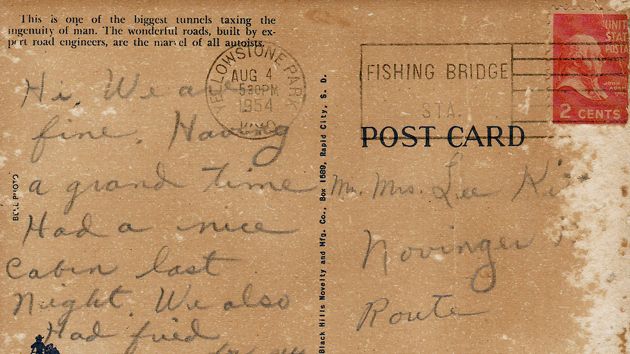 This is one of the biggest tunnels taxing the
ingenuity of man. The wonderful roads, built by ex-
pert road engineers, are the marvel of all autoists.
YELLOWSTONE PARK
AUG 4
5 30 PM
1954
WYO.
FISHING BRIDGE
STA.
UNITED
STATES
POSTA
2 CENTS
POST CARD
Black Hills Novelty and Mfg. Co., Box 1589, Rapid City, S. D.
PHOTO
Hi. We are
fine. Having
a grand time
Had a nice
Cabin last
Night. We also
Had fried
Mr. Mrs. Lee
Novinger
Route